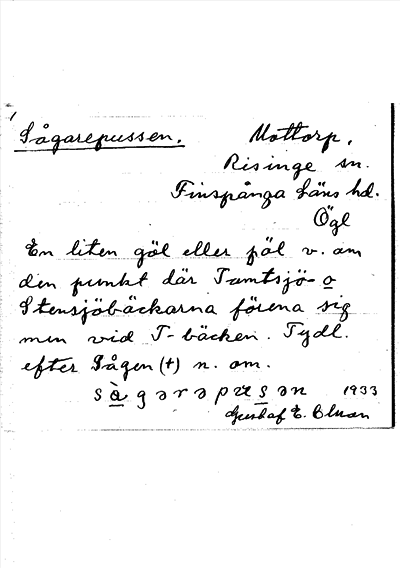 Sågarepussen. Mottorp,
Risinge sn.
Finspånga Läns hd.
Ögl
En liten göl eller pöl v. om
den punkt där Tomtsjö- o
Stensjöbäckarna förena sig
men vid T-bäcken. Tydl.
efter Sågen (+) n. om.
sàgarapusan 1933
Gustaf E.